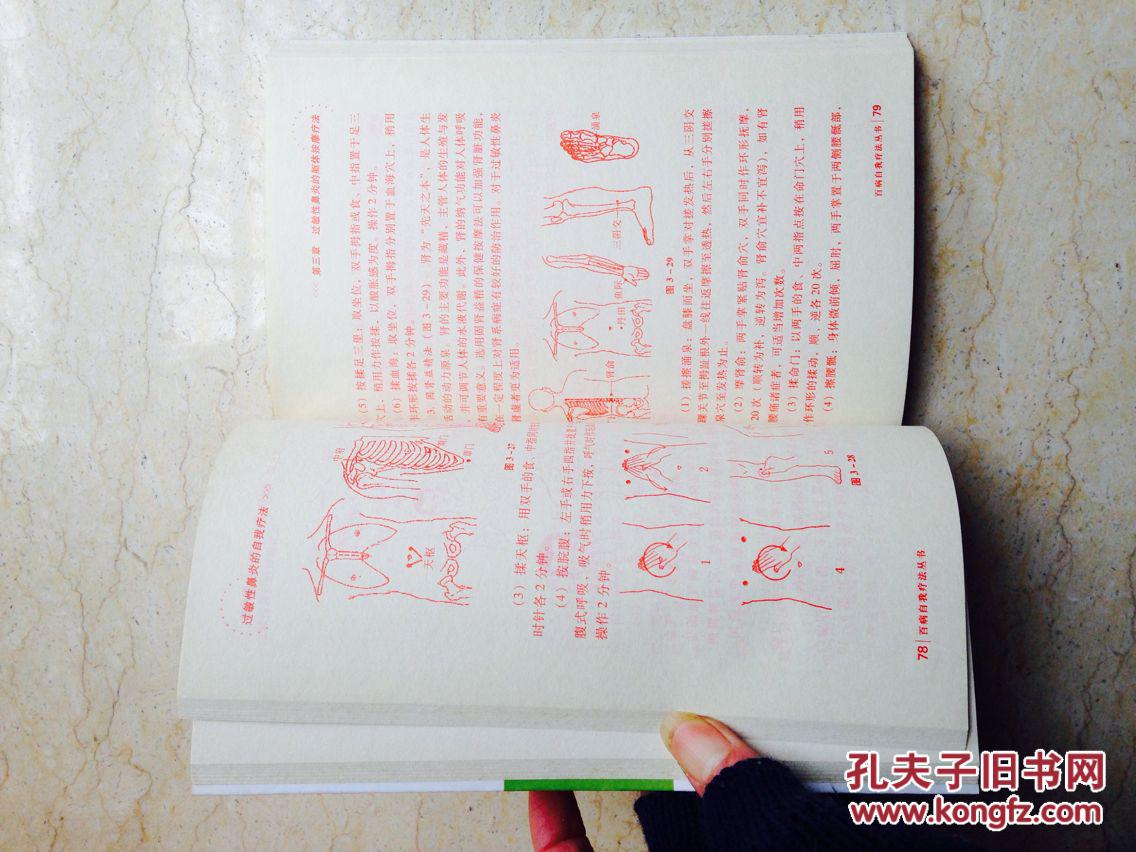 过敏性鼻炎的自我疗法 >>>
中府
章门
天枢
图3-27
(3) 揉天枢：用双手的食、中指
时针各2分钟。
(4) 按脘腹：左手或右手四指并拢
腹式呼吸，吸气时稍用力下按，呼气时
操作2分钟。
1
2
4
5
图3-28
78 | 百病自我疗法丛书
<<< 第三章 过敏性鼻炎的躯体按摩疗法
(5) 按揉足三里：取坐位，双手拇指或食、中指置于足三
穴上，稍用力作按揉，以酸胀感为度，操作2分钟。
(6) 揉血海：取坐位，双手拇指分别置于血海穴上，稍用
作环形按揉各2分钟。
3. 固肾益精法（图3-29） 肾为“先天之本”，是人体生
活动的动力源泉。肾的主要功能是藏精，主管人体的生殖与发
并可调节人体的水液代谢。此外，肾的纳气功能对人体呼吸
有重要意义。选用固肾益精的保健按摩法可以加强肾脏功能，
在一定程度上对肾系病症有较好的防治作用。对于过敏性鼻炎
肾虚者更为适用。
肾俞
丹田
鱼际
三阴交
涌泉
图3-29
(1) 搓擦涌泉：盘膝而坐，双手掌对搓发热后，从三阴交
踝关节至拇趾根外一线往返摩擦至透热，然后左右手分别搓擦
泉穴至发热为止。
(2) 摩肾俞：两手掌紧贴肾俞穴，双手同时作环形抚摩，
20次（顺转为补，逆转为泻。肾俞穴宜补不宜泻），如有肾
腰痛诸症者，可适当增加次数。
(3) 揉命门：以两手的食、中两指点按在命门穴上，稍用
作环形的揉动，顺、逆各20次。
(4) 擦腰骶：身体微前倾，屈肘，两手掌置于两侧腰骶部，
百病自我疗法丛书 | 79
孔夫子旧书网
www.kongfz.com